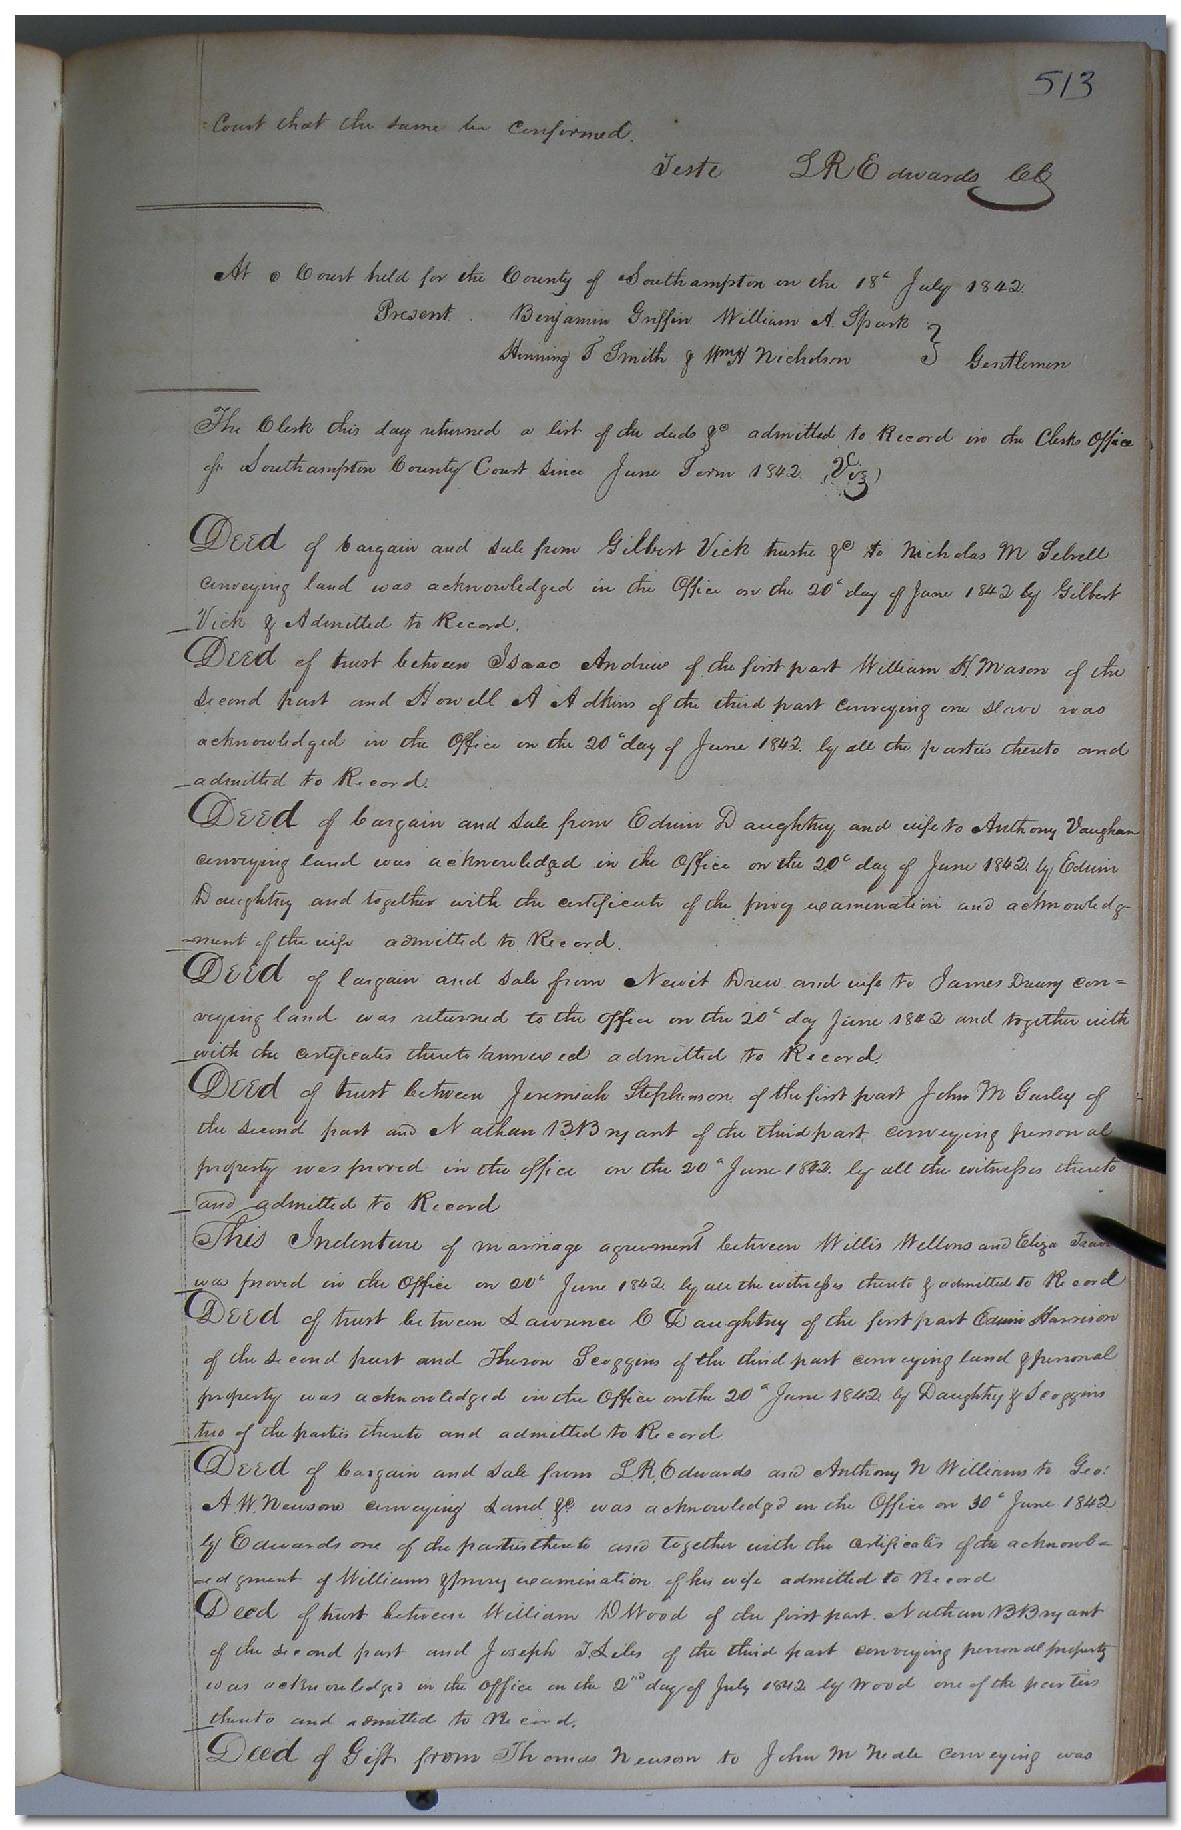 513
Court that the same be confirmed.
Teste L R Edwards CC
At a Court held for the County of Southampton on the 18th July 1842
Present. Benjamin Griffin William A. Spark
Henning T Smith & Wm H Nicholson } Gentlemen
The Clerk this day returned a list of the deeds &c admitted to Record in the Clerks Office
of Southampton County Court since June Term 1842. (Viz)
Deed of bargain and sale from Gilbert Vick trustee &c to Nicholas M Sebrell
conveying land was acknowledged in the Office on the 20th day of June 1842 by Gilbert
Vick & Admitted to Record.
Deed of trust between Isaac Andrew of the first part William H. Mason of the
second part and Howell A Adkins of the third part conveying one slave was
acknowledged in the Office on the 20th day of June 1842. by all the parties thereto and
admitted to Record.
Deed of bargain and sale from Edwin Daughtry and wife to Anthony Vaughan
conveying land was acknowledged in the Office on the 20th day of June 1842 by Edwin
Daughtry and together with the certificate of the privy examination and acknowledg-
-ment of the wife admitted to Record.
Deed of bargain and sale from Newit Drew and wife to James Drewry con=
veying land was returned to the office on the 20th day June 1842 and together with
with the certificates thereto annexed admitted to Record.
Deed of trust between Jeremiah Stephenson of the first part John M Gurley of
the second part and Nathan B Bryant of the third part conveying personal
property was proved in the office on the 20th June 1842. by all the witnesses thereto
and admitted to Record
This Indenture of marriage agreement between Willis Wellons and Eliza
was proved in the Office on 20th June 1842 by all the witnesses thereto & admitted to Record
Deed of trust between Lawrence C Daughtry of the first part Edwin Harrison
of the second part and Theron Scoggins of the third part conveying land & personal
property was acknowledged in the Office on the 20th June 1842. by Daughtry & Scoggins
two of the parties thereto and admitted to Record
Deed of bargain and sale from L. R. Edwards and Anthony N Williams to Geo:
A. W. Newsom conveying Land &c was acknowledgd in the Office on 30th June 1842
by Edwards one of the parties thereto and together with the certificates of the acknowl-
-edgment of Williams & privy examination of his wife admitted to Record
Deed of trust between William D Wood of the first part. Nathan B Bryant
of the second part and Joseph T Liles of the third part conveying personal property
was acknowledged in the office on the 2nd day of July 1842 by Wood one of the parties
thereto and admitted to Record.
Deed of Gift from Thomas Newsom to John M Neale conveying was